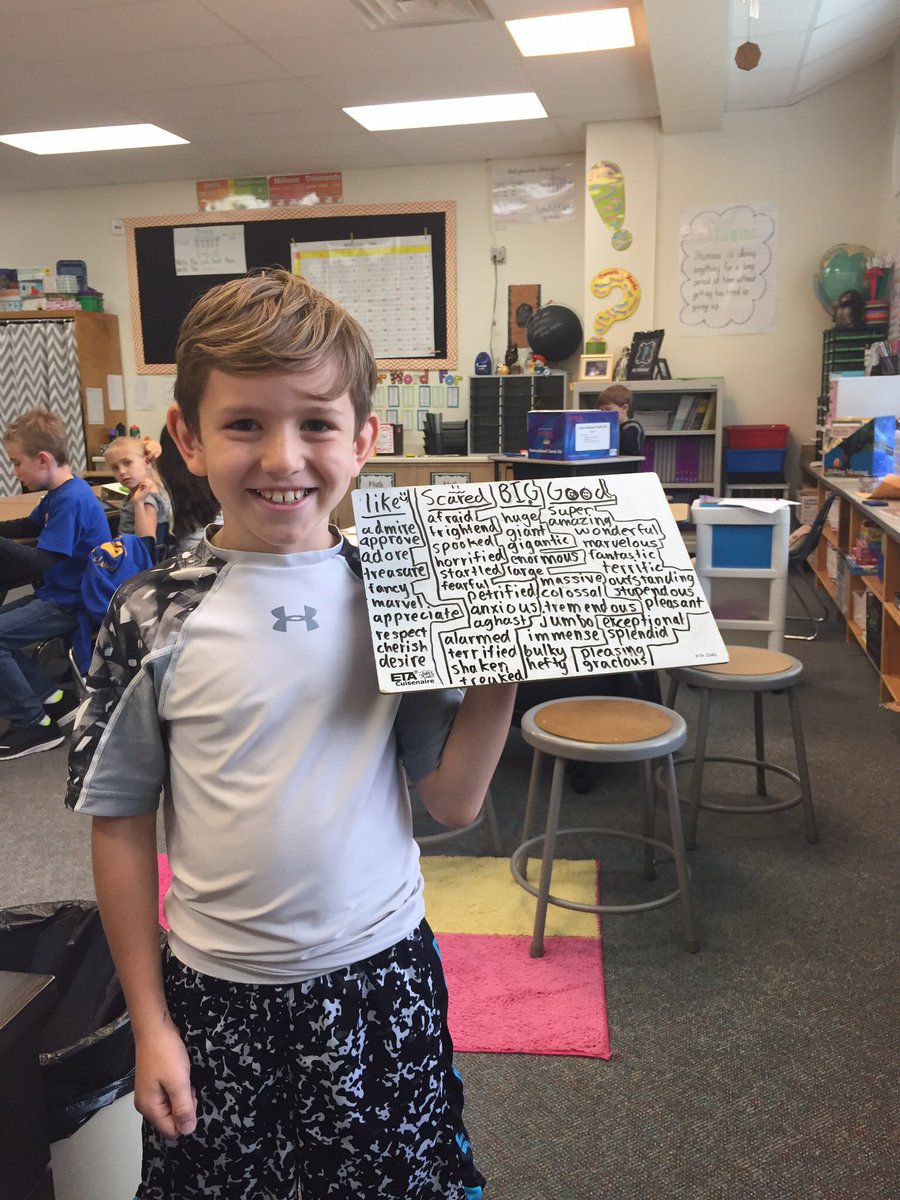 Millions Thousands
Stamina
Stamina is
doing anything
for a long
period of time
without getting
too tired or
giving up.
Math
like
admire
approve
adore
treasure
fancy
marvel
appreciate
respect
cherish
desire
Scared
afraid
frightend
spooked
horrified
startled
fearful
petrified
anxious
aghast
alarmed
terrified
shaken
BIG
huge
giant
gigantic
enormous
large
massive
colossal
tremendous
Jumbo
immense
bulky
hefty
Good
super
amazing
wonderful
marvelous
fantastic
terrific
outstanding
stupendous
pleasant
exceptional
splendid
pleasing
gracious
ETA
Cuisenaire